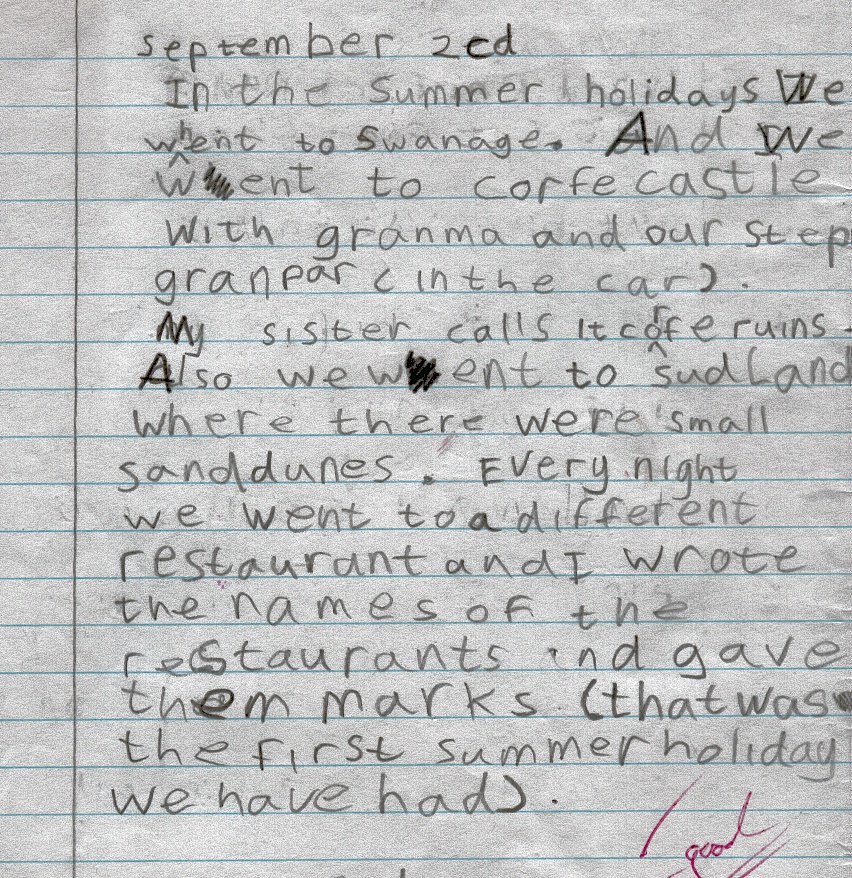 september 2cd
In the summer holidays We
whent to swanage. And we
went to corfe castle
with granma and our step
granpar (in the car).
My sister calls it corfe ruins.
Also we went to sudland
where there were small
sanddunes. Every night
we went to a different
restaurant and I wrote
the names of the
restaurants and gave
them marks (that was
the first summer holiday
we have had).
good